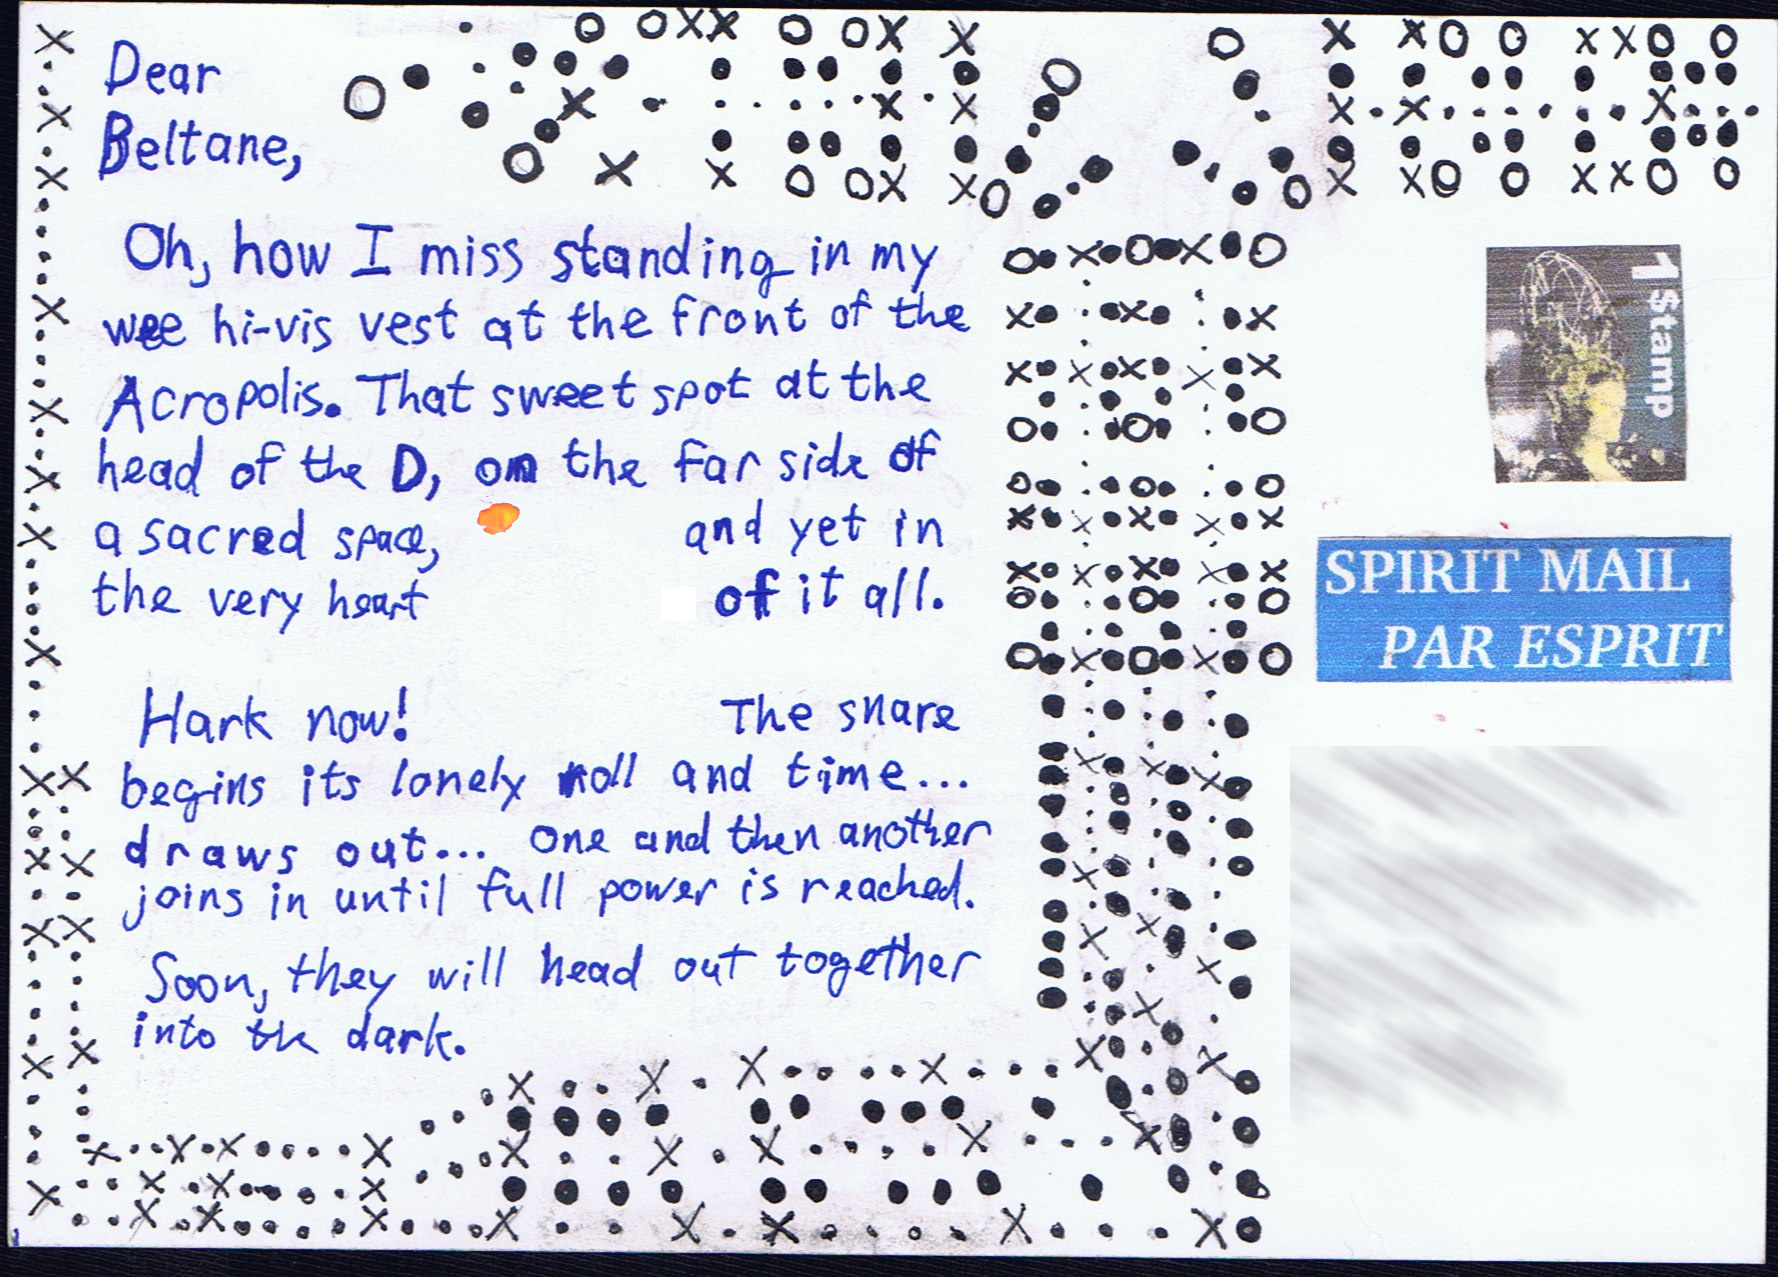 Dear
Beltane,
Oh, how I miss standing in my
wee hi-vis vest at the front of the
Acropolis. That sweet spot at the
head of the D, on the far side of
a sacred space, and yet in
the very heart of it all.
Hark now! The snare
begins its lonely roll and time...
draws out... One and then another
joins in until full power is reached.
Soon, they will head out together
into the dark.
1 Stamp
SPIRIT MAIL
PAR ESPRIT